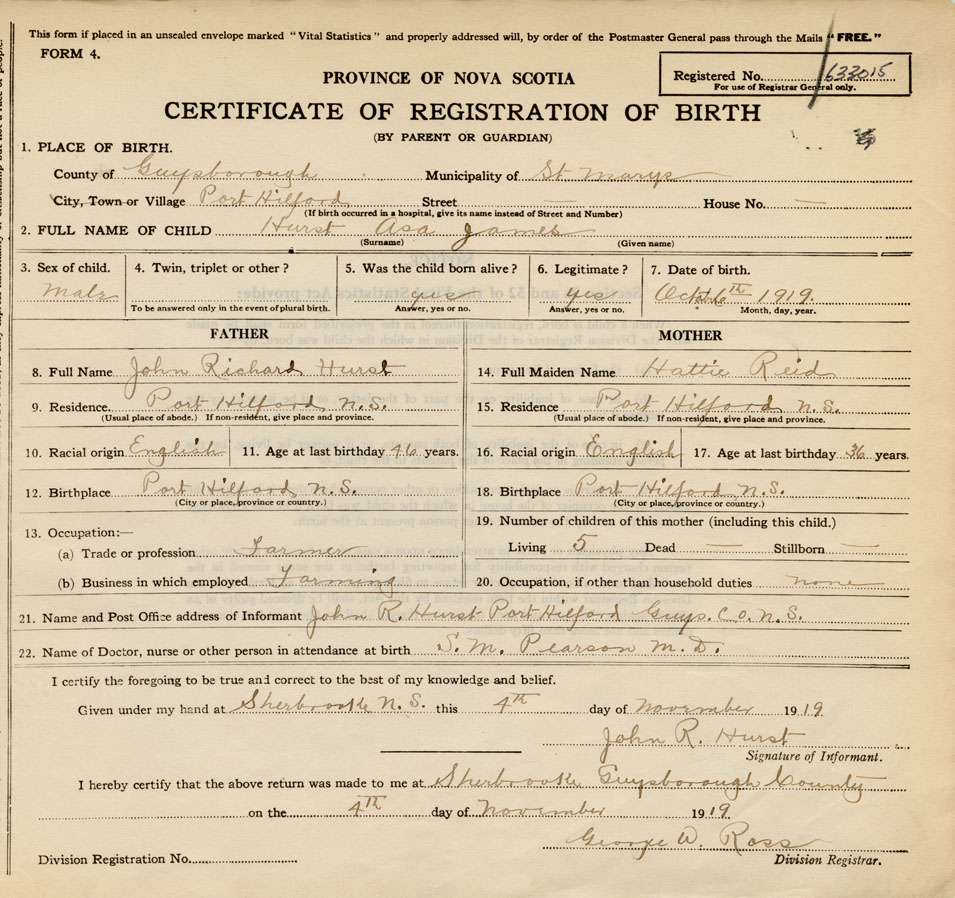 This form if placed in an unsealed envelope marked "Vital Statistics" and properly addressed will, by order of the Postmaster General pass through the Mails "FREE."
FORM 4.
Registered No. 633015
For use of Registrar General only.
PROVINCE OF NOVA SCOTIA
CERTIFICATE OF REGISTRATION OF BIRTH
(BY PARENT OR GUARDIAN)
1. PLACE OF BIRTH.
County of Guysborough Municipality of St Marys
City, Town or Village Port Hilford Street — House No. —
(If birth occurred in a hospital, give its name instead of Street and Number)
2. FULL NAME OF CHILD Hurst Asa James
(Surname) (Given name)
3. Sex of child. 4. Twin, triplet or other? 5. Was the child born alive? 6. Legitimate? 7. Date of birth.
Male yes yes Oct 6th 1919.
To be answered only in the event of plural birth. Answer, yes or no. Answer, yes or no. Month, day, year.
FATHER
8. Full Name John Richard Hurst
9. Residence. Port Hilford N.S.
(Usual place of abode.) If non-resident, give place and province.
10. Racial origin English 11. Age at last birthday 46 years.
12. Birthplace Port Hilford N.S.
(City or place, province or country.)
13. Occupation:—
(a) Trade or profession Farmer
(b) Business in which employed Farming
MOTHER
14. Full Maiden Name Hattie Reid
15. Residence Port Hilford N.S.
(Usual place of abode.) If non-resident, give place and province.
16. Racial origin English 17. Age at last birthday 36 years.
18. Birthplace Port Hilford N.S.
(City or place, province or country.)
19. Number of children of this mother (including this child.)
Living 5 Dead — Stillborn —
20. Occupation, if other than household duties none
21. Name and Post Office address of Informant John R. Hurst Port Hilford Guys. Co. N.S.
22. Name of Doctor, nurse or other person in attendance at birth S. M. Pearson M.D.
I certify the foregoing to be true and correct to the best of my knowledge and belief.
Given under my hand at Sherbrooke N.S. this 4th day of November 1919.
John R. Hurst
Signature of Informant.
I hereby certify that the above return was made to me at Sherbrooke Guysborough County
on the 4th day of November 1919.
George W. Ross
Division Registration No. Division Registrar.